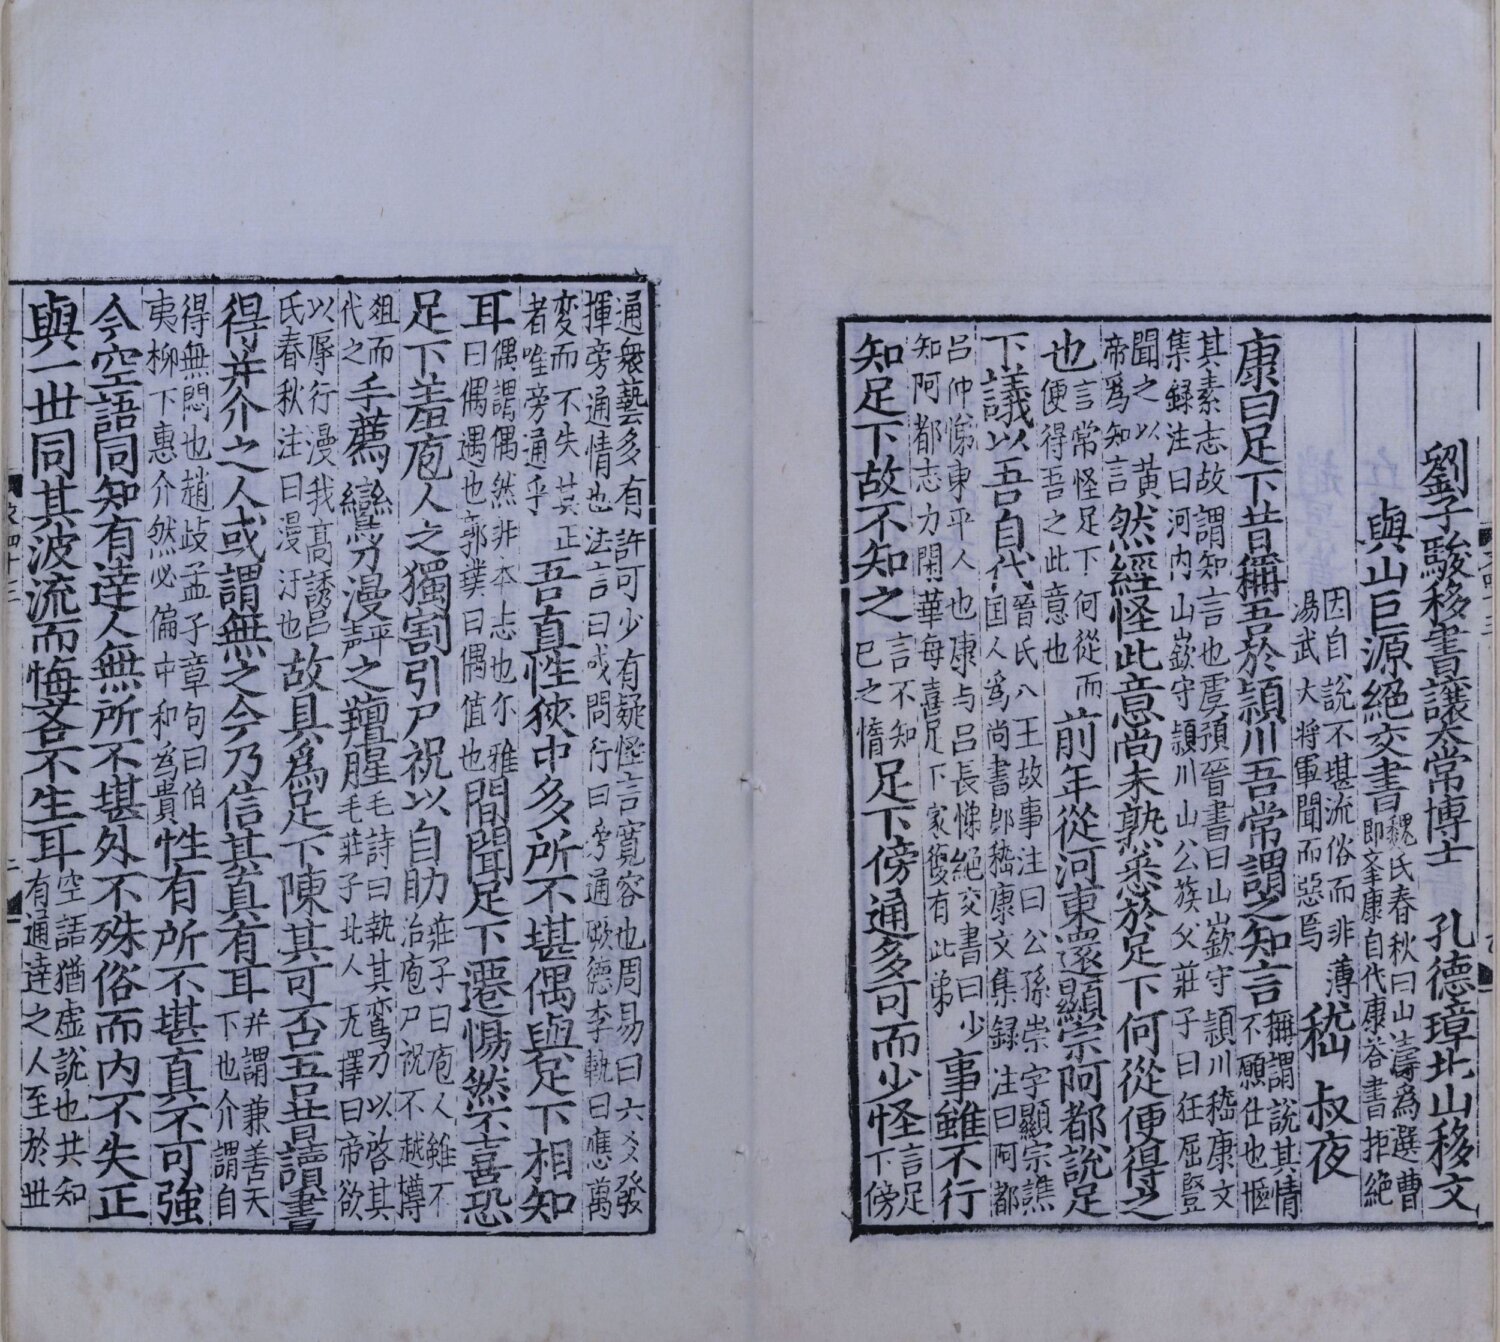 劉子駿移書讓太常博士　孔德璋北山移文
與山巨源絕交書魏氏春秋曰山濤為選曹即舉康自代康荅書拒絕
因自說不堪流俗而非薄湯武大將軍聞而惡焉　嵇叔夜
康白足下昔稱吾於潁川吾常謂之知言稱謂說其情不願仕也愜
其素志故謂知言也虞預晉書曰山嶔守潁川嵇康文集録注曰河內山嶔守潁川山公族父莊子曰狂屈竪
聞之以黃帝爲知言然經怪此意尚未熟悉於足下何從便得之
也言常怪足下何從而便得吾之此意也前年從河東還顯宗阿都說足
下議以吾自代晉氏八王故事注曰公孫崇字顯宗譙国人爲尚書郎嵇康文集録注曰阿都
呂仲悌東平人也康与呂長悌絕交書曰少知阿都志力閑華每喜足下家復有此弟事雖不行
知足下故不知之言不知已之惰足下傍通多可而少怪言足下傍
通衆藝多有許可少有疑怪言寬容也周易曰六爻發揮旁通情也法言曰或問行曰旁通厥德李軌曰應萬
変而不失其正者唯旁通乎吾直性狹中多所不堪偶與足下相知
耳偶謂偶然非夲志也尔雅曰偶遇也郭璞曰偶值也間聞足下遷惕然不喜恐
足下羞庖人之獨割引尸祝以自助莊子曰庖人雖不治庖尸祝不越樽
俎而代之手薦鸞刀漫平声之羶腥毛詩曰執其鸞刀以啓其毛莊子北人无擇曰帝欲
以辱行漫我高誘呂氏春秋注曰漫汙也故具爲足下陳其可否吾昔讀書
得并介之人或謂無之今乃信其真有耳并謂兼善天下也介謂自
得無悶也趙歧孟子章句曰伯夷柳下惠介然必偏中和爲貴性有所不堪真不可強
今空語同知有達人無所不堪外不殊俗而內不失正
與一丗同其波流而悔吝不生耳空語猶虛說也共知有通達之人至於丗